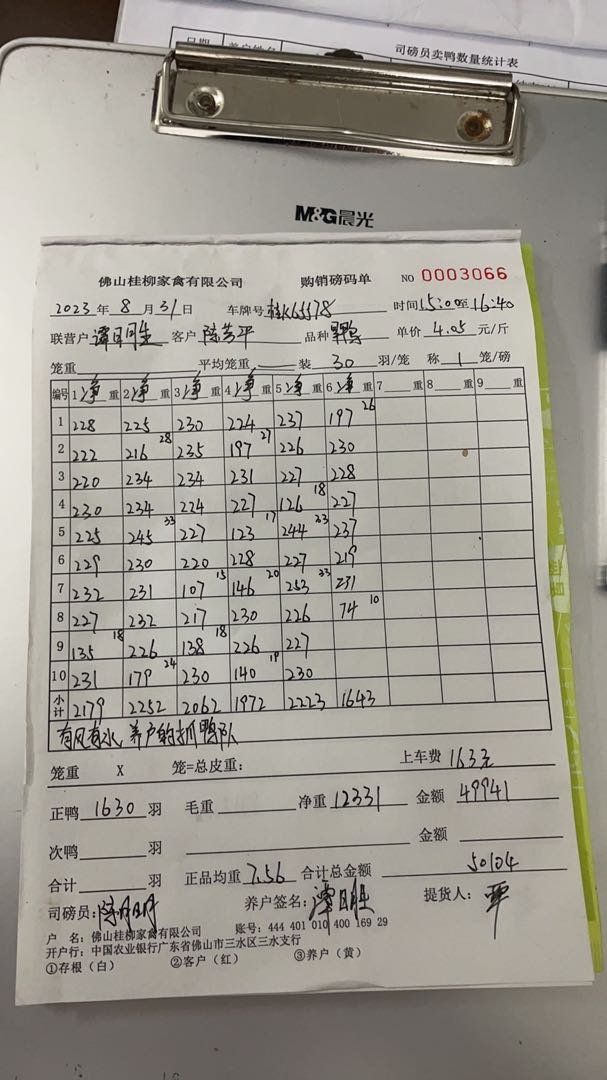 司磅员卖鸭数量统计表
M&G晨光
佛山桂柳家禽有限公司 购销磅码单 NO 0003066
2023 年 8 月 31 日 车牌号 桂K65578 时间 15:00至16:40
联营户 谭日胜 客户 陈芳平 品种 单价 4.05 元/斤
笼重 平均笼重 装 30 羽/笼 称 1 笼/磅
编号 1 净 重 2 净 重 3 净 重 4 净 重 5 净 重 6 净 重 7 重 8 重 9 重
1 228 225 230 224 237 197 26
2 222 216 28 235 197 27 226 230
3 220 234 234 231 227 228
4 230 234 224 227 126 18 227
5 225 245 33 227 123 17 244 33 237
6 229 230 220 228 227 219
7 232 231 107 15 146 20 253 33 231
8 227 232 217 230 226 74 10
9 135 18 226 138 18 226 227
10 231 179 24 230 140 19 230
小计 2179 2252 2062 1972 2223 1643
有风有水 养户的抓鸭队
笼重 X 笼=总皮重: 上车费 163元
正鸭 1630 羽 毛重 净重 12331 金额 49941
次鸭 羽 金额
合计 羽 正品均重 7.56 合计总金额 50104
司磅员: 养户签名: 谭日胜 提货人: 覃
户 名: 佛山桂柳家禽有限公司 账号: 444 401 010 400 169 29
开户行: 中国农业银行广东省佛山市三水区三水支行
①存根(白) ②客户(红) ③养户(黄)